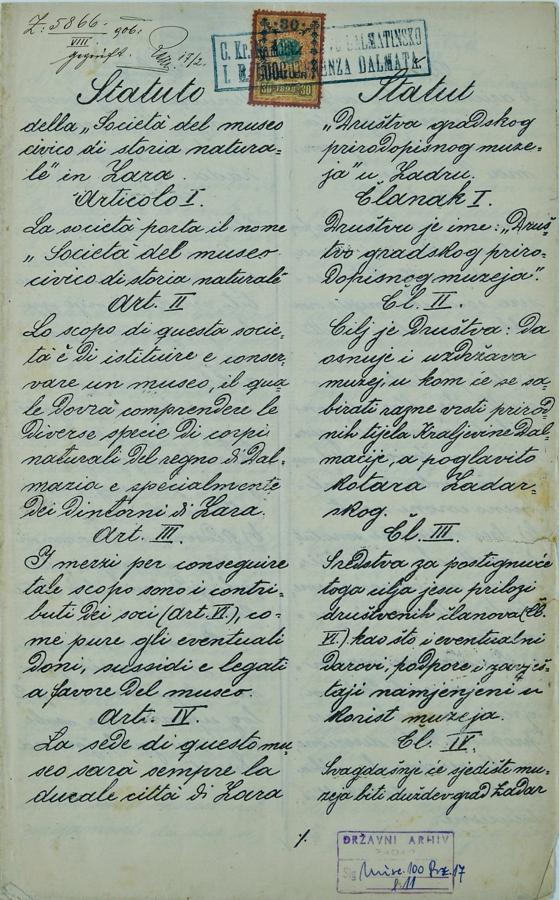 Z. 5866
906.
VIII.
17/2.
30
C. Kr. DALMATINSKO
I. R. DALMATA
30 1898 30
Statuto
della „Società del museo
civico di storia natura=
le" in Zara.
Articolo I.
La società porta il nome
„Società del museo
civico di storia naturale"
Art. II
Lo scopo di questa socie=
tà è di istituire e conser=
vare un museo, il qua
le dovrà comprendere le
diverse specie di corpi
naturali del regno di Dal=
mazia e specialmente
dei dintorni di Zara.
Art. III.
I mezzi per conseguire
tale scopo sono i contri=
buti dei soci (Art. VI.), co=
me pure gli eventuali
doni, sussidi e legati
a favore del museo.
Art. IV.
La sede di questo mu
seo sarà sempre la
ducale città di Zara
Statut
„Društva gradskog
prirodopisnog muze=
ja" u Zadru.
Članak I.
Društvu je ime: „Druš=
tvo gradskog priro=
dopisnog muzeja".
Čl. II.
Cilj je Društva: da
osnuje i uzdržava
muzej, u kom će se sa=
birati razne vrsti prirod
nih tijela Kraljevine Dal=
macije, a poglavito
kotara Zadar=
skog.
Čl. III.
Sredstva za postignuće
toga cilja jesu prilozi
društvenih članova (Čl.
VI.) kao što i eventualni
darovi, podpore i zavješ=
taji namjenjeni u
korist muzeja.
Čl. IV.
Svagdašnje će sjedište mu=
zeja biti duždev grad Zadar
./.
DRŽAVNI ARHIV
ZADAR
Sig. Misc. 100 Poz. 17
L. 11